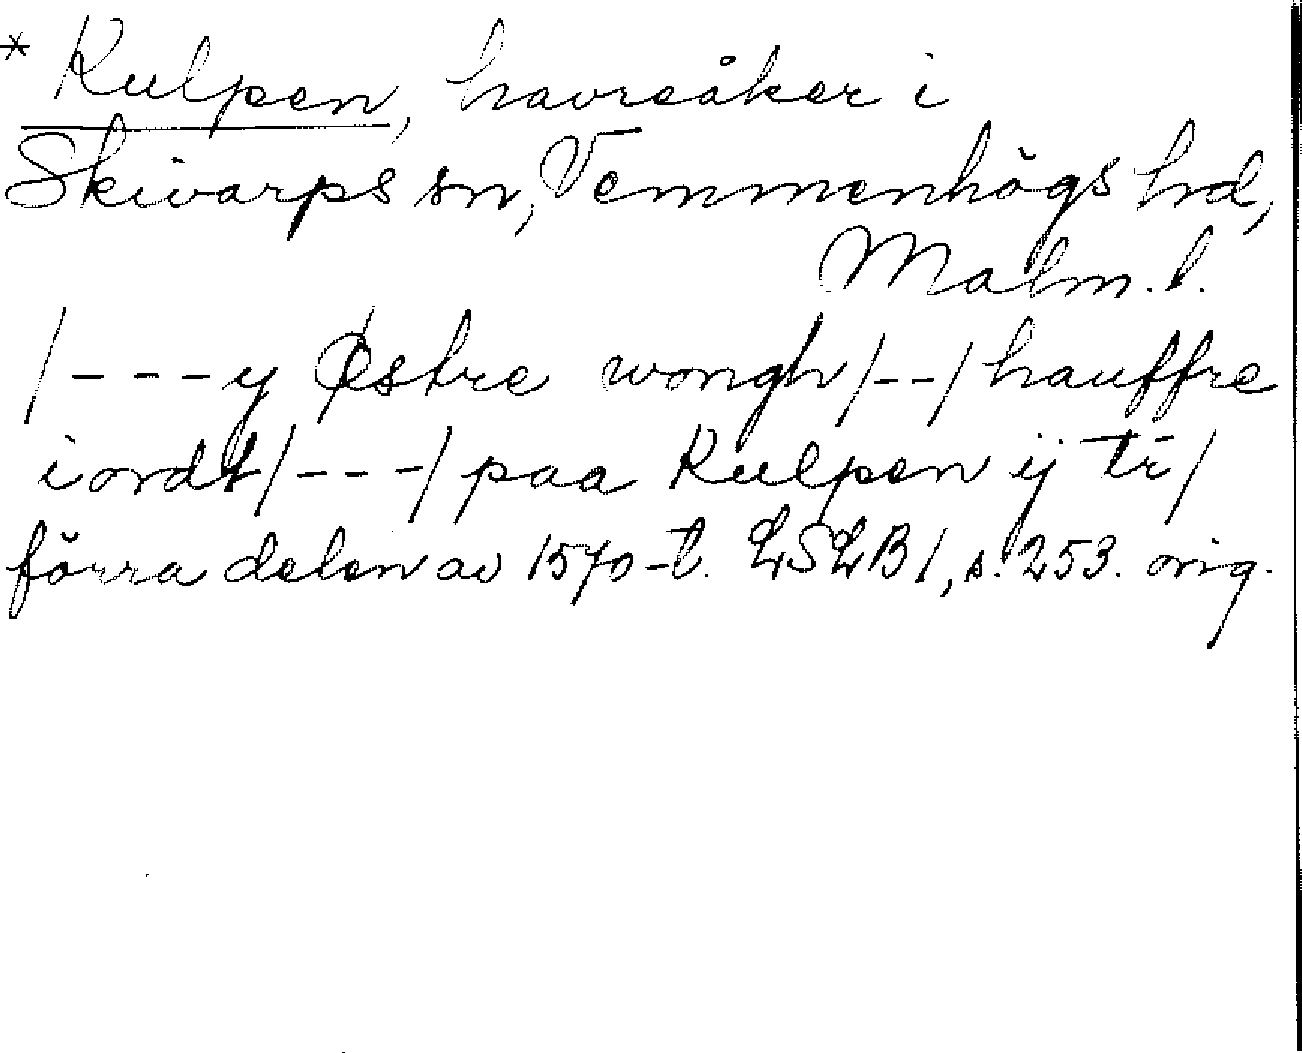 * Kulpen, havreåker i
Skivarps sn, Vemmenhögs hd,
Malm. l.
/---y Østre wongh/--/hauffre
iordt/---/paa Kulpen ij tr/
förra delen av 1570-t. LSLB1, s. 253. orig.